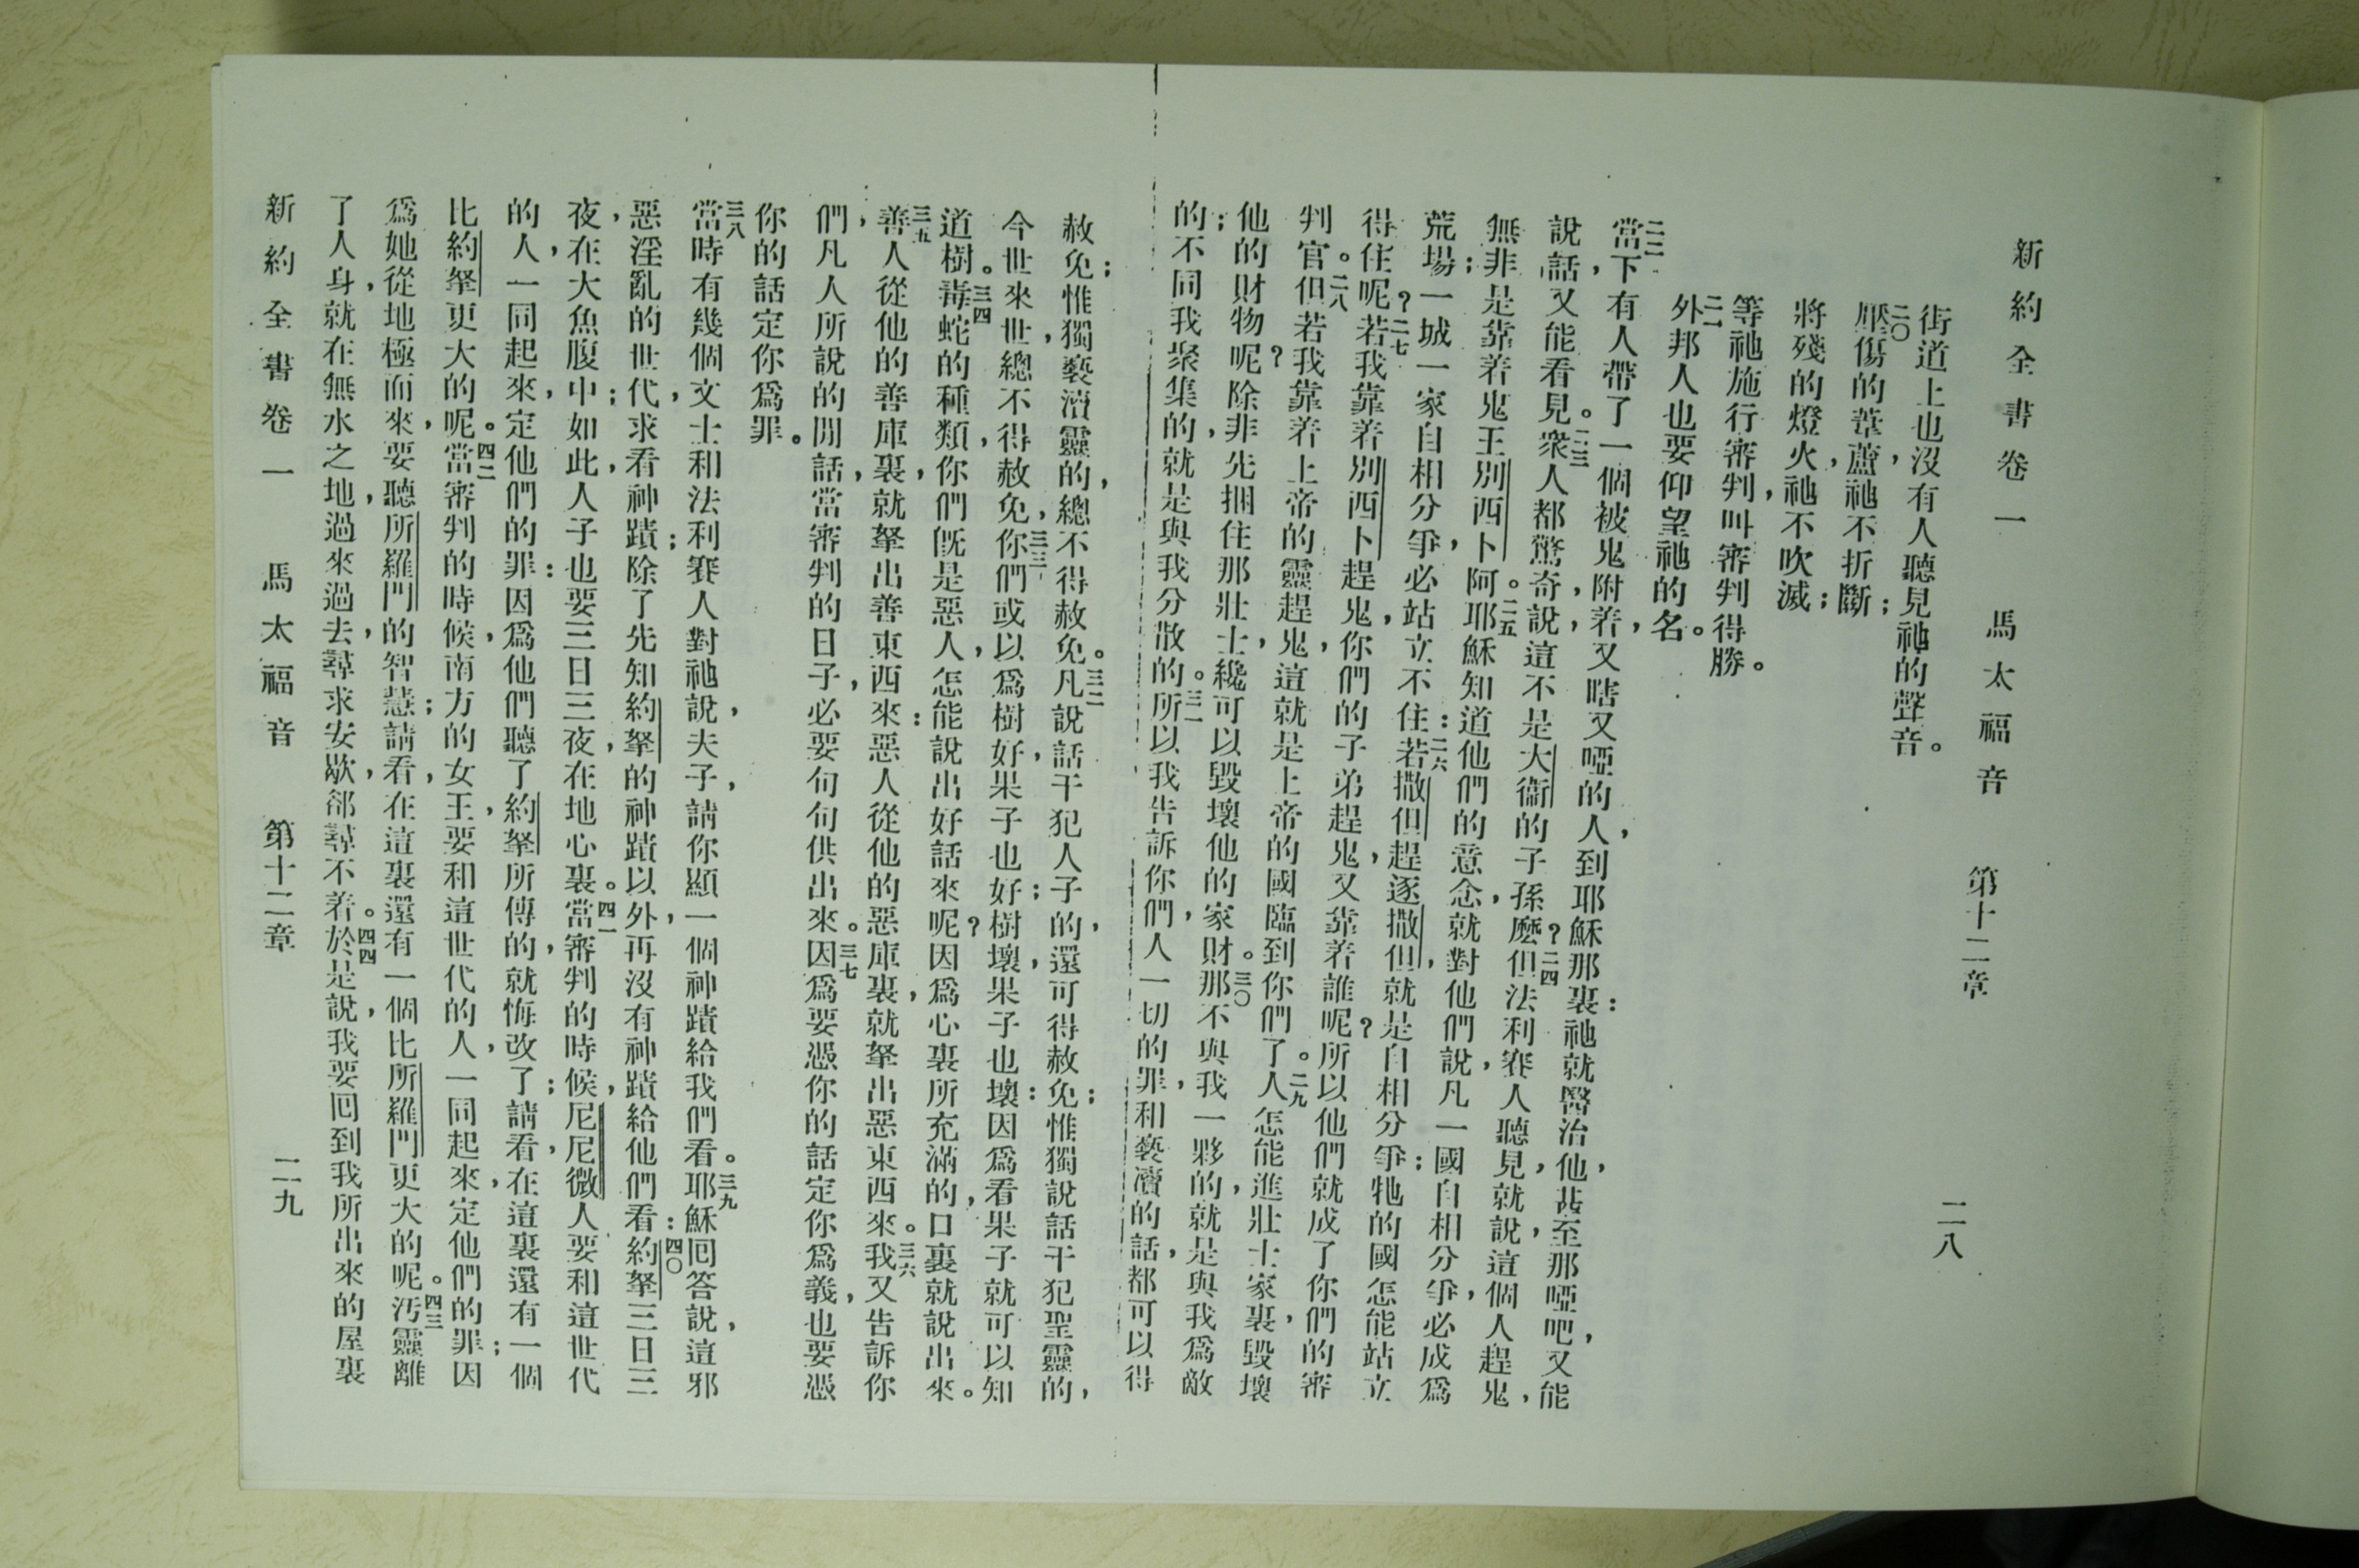 新約全書卷一 馬太福音 第十二章 二八
街道上也沒有人聽見祂的聲音。
二〇壓傷的葦蘆,祂不折斷;
將殘的燈火,祂不吹滅;
等祂施行審判,叫審判得勝。
二一外邦人也要仰望祂的名。
二二當下有人帶了一個被鬼附着,又瞎又啞的人,到耶穌那裏:祂就醫治他,甚至那啞吧,又能
說話,又能看見。二三衆人都驚奇,說,這不是大衞的子孫麼?二四但法利賽人聽見,就說,這個人趕鬼,
無非是靠着鬼王別西卜阿。二五耶穌知道他們的意念,就對他們說,凡一國自相分爭,必成爲
荒場;一城一家自相分爭,必站立不住:二六若撒但趕逐撒但,就是自相分爭;牠的國怎能站立
得住呢?二七若我靠着別西卜趕鬼,你們的子弟趕鬼,又靠着誰呢?所以他們就成了你們的審
判官。二八但若我靠着上帝的靈趕鬼,這就是上帝的國臨到你們了。二九人怎能進壯士家裏,毀壞
他的財物呢?除非先捆住那壯士,纔可以毀壞他的家財。三〇那不與我一夥的,就是與我爲敵
的;不同我聚集的,就是與我分散的。三一所以我告訴你們,人一切的罪,和褻瀆的話,都可以得
赦免;惟獨褻瀆靈的,總不得赦免。三二凡說話干犯人子的,還可得赦免;惟獨說話干犯聖靈的,
今世來世,總不得赦免,三三你們或以爲樹好,果子也好;樹壞,果子也壞:因爲看果子就可以知
道樹。三四毒蛇的種類,你們旣是惡人,怎能說出好話來呢?因爲心裏所充滿的,口裏就說出來。
三五善人從他的善庫裏,就拏出善東西來:惡人從他的惡庫裏,就拏出惡東西來。三六我又告訴你
們,凡人所說的閒話,當審判的日子,必要句句供出來。三七因爲要憑你的話定你爲義,也要憑
你的話定你爲罪。
三八當時有幾個文士和法利賽人對祂說,夫子,請你顯一個神蹟給我們看。三九耶穌囘答說,這邪
惡淫亂的世代,求看神蹟;除了先知約拏的神蹟以外,再沒有神蹟給他們看:四〇約拏三日三
夜,在大魚腹中;如此,人子也要三日三夜,在地心裏。四一當審判的時候,尼尼微人要和這世代
的人,一同起來,定他們的罪:因爲他們聽了約拏所傳的,就悔改了;請看,在這裏還有一個
比約拏更大的呢。四二當審判的時候,南方的女王,要和這世代的人,一同起來,定他們的罪;因
爲她從地極而來,要聽所羅門的智慧;請看,在這裏還有一個比所羅門更大的呢。四三汚靈離
了人身,就在無水之地,過來過去,尋求安歇,卻尋不着。四四於是說,我要囘到我所出來的屋裏
新約全書卷一 馬太福音 第十二章 二九